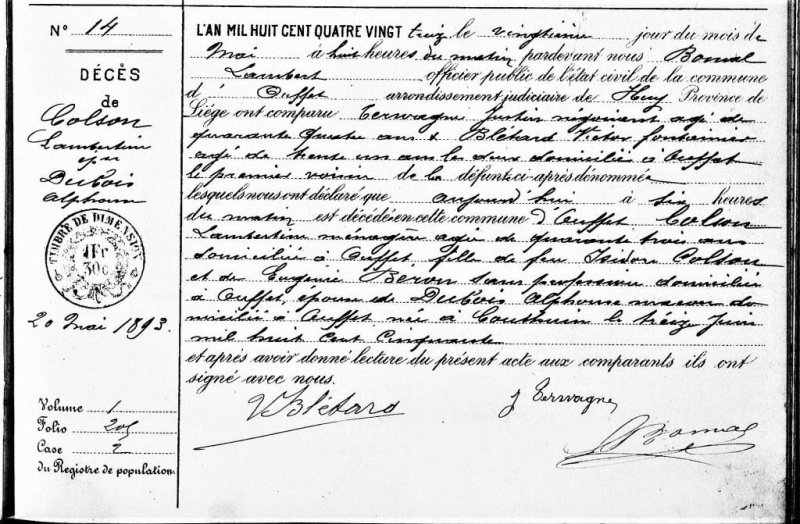 N° 14
DÉCÈS
de
Colson
Lambertine
épse
Dubois
Alphonse
TIMBRE DE DIMENSION
1Fr
30c
20 Mai 1893.
Volume 1
Folio 205
Case 2
du Registre de population.
L'AN MIL HUIT CENT QUATRE VINGT treize le vingtième jour du mois de
Mai à huit heures du matin pardevant nous Bomal
Lambert officier public de l'état civil de la commune
d' Ouffet arrondissement judiciaire de Huy Province de
Liége ont comparu Terwagne Justin négociant agé de
quarante quatre ans & Blétard Victor fontainier
agé de trente un ans les deux domiciliés à Ouffet
le premier voisin de la défunte ci-après dénommée
lesquels nous ont déclaré que aujourd'hui à six heures
du matin est décédée en cette commune d'Ouffet Colson
Lambertine ménagère agée de quarante trois ans
domiciliée à Ouffet fille de feu Isidore Colson
et de Eugénie Beron sans profession domiciliée
à Ouffet, épouse de Dubois Alphonse macon do
micilié à Ouffet née à Couthuin le treize Juin
mil huit cent cinquante
et après avoir donné lecture du présent acte aux comparants ils ont
signé avec nous.
V Blétard J Terwagne
Bomal